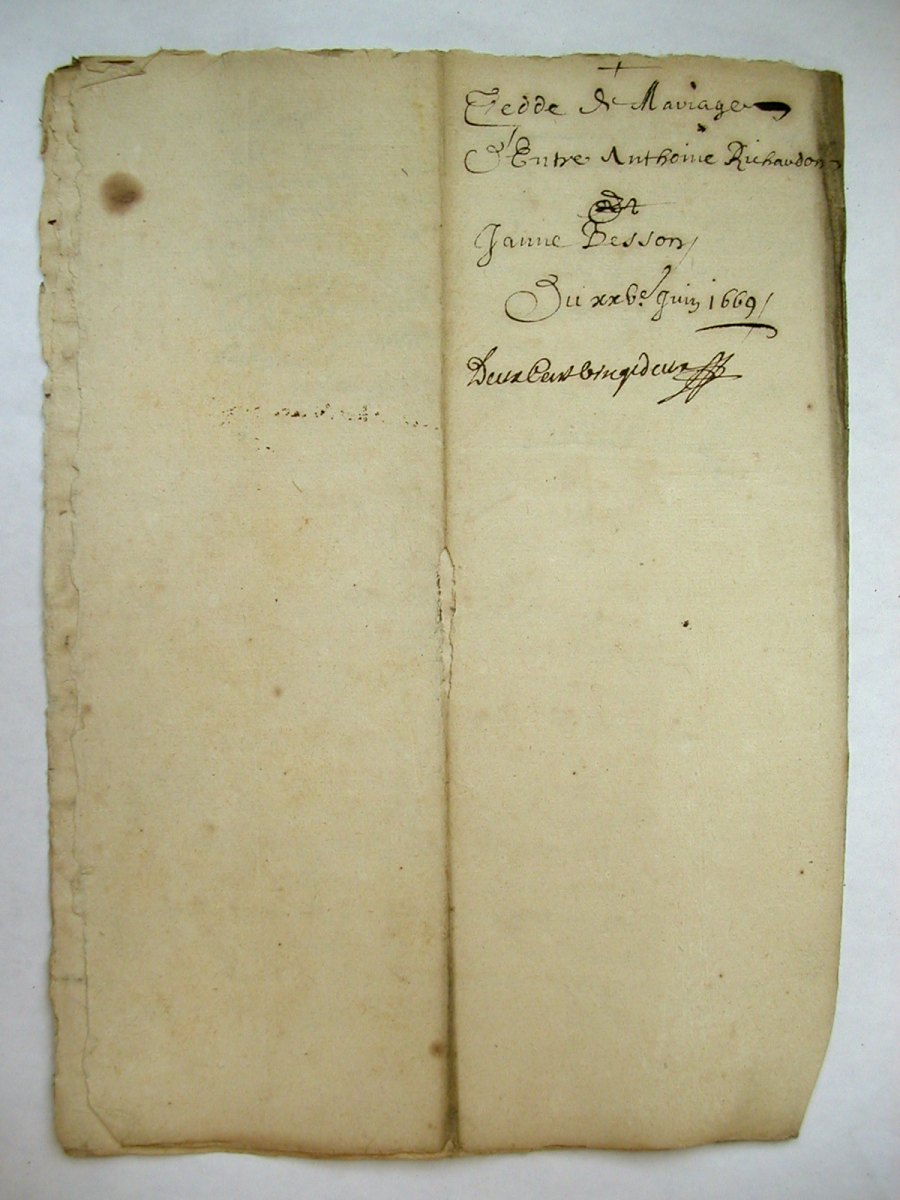 Cedde de Mariage
D'Entre Anthoine Richaudon
Et
Janne Besson
Du xxve Juin 1669
Deux Cent vingt deux